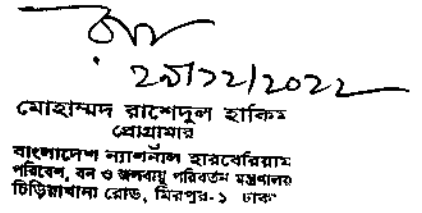 ২৯/১২/২০২২
মোহাম্মদ রাশেদুল হাকিম
প্রোগ্রামার
বাংলাদেশ ন্যাশনাল হারবেরিয়াম
পরিবেশ, বন ও জলবায়ু পরিবর্তন মন্ত্রণালয়
চিড়িয়াখানা রোড, মিরপুর-১ ঢাকা